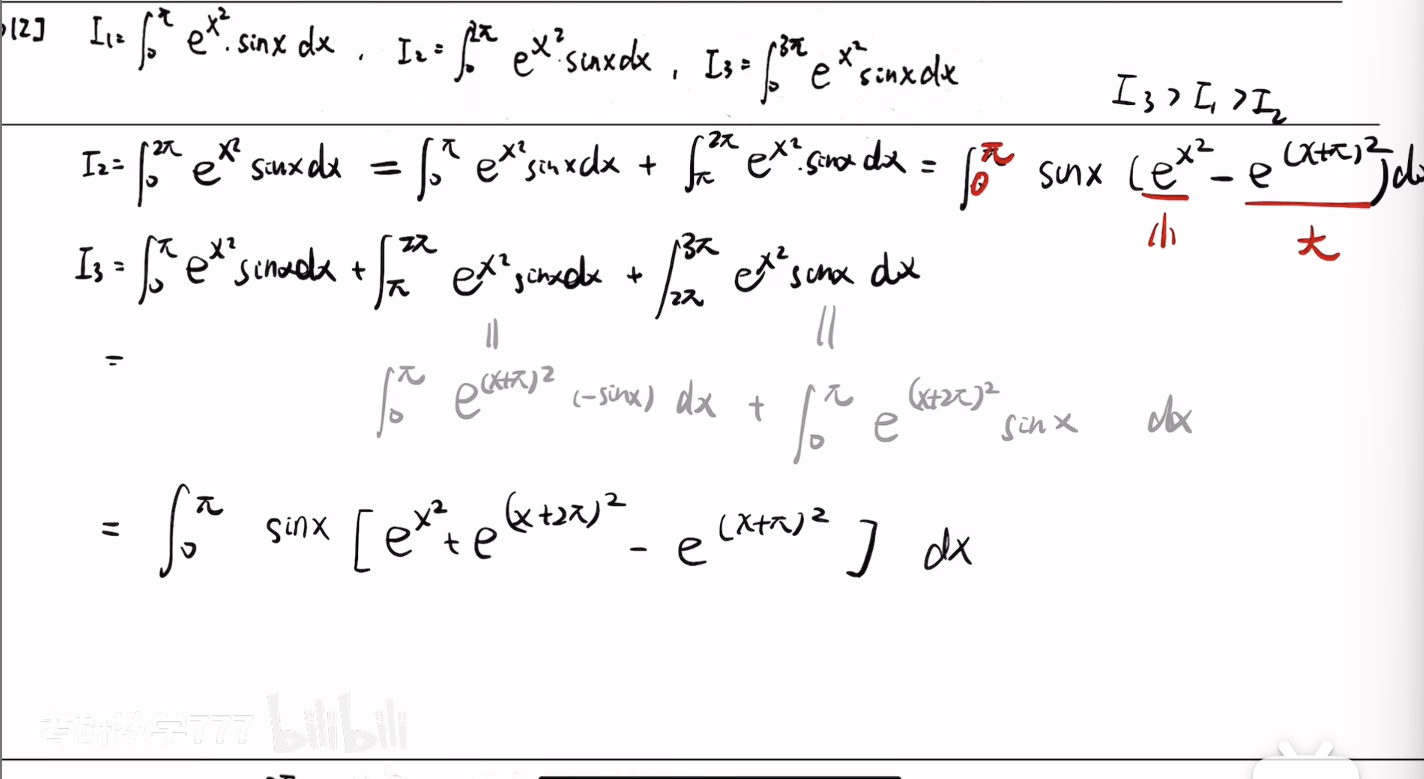 [2] I₁=∫₀^π e^{x²}·sinx dx , I₂=∫₀^{2π} e^{x²}·sinxdx , I₃=∫₀^{3π} e^{x²}sinxdx
I₃>I₁>I₂
I₂=∫₀^{2π} e^{x²} sinxdx = ∫₀^π e^{x²}sinxdx + ∫_π^{2π} e^{x²}·sinx dx = ∫₀^π sinx (e^{x²} - e^{(x+π)²})dx
小 大
I₃=∫₀^π e^{x²}sinxdx + ∫_π^{2π} e^{x²}sinxdx + ∫_{2π}^{3π} e^{x²}sinx dx
|| ||
= ∫₀^π e^{(x+π)²} (-sinx) dx + ∫₀^π e^{(x+2π)²} sinx dx
= ∫₀^π sinx [e^{x²}+e^{(x+2π)²} - e^{(x+π)²}] dx
考研数学777 bilibili